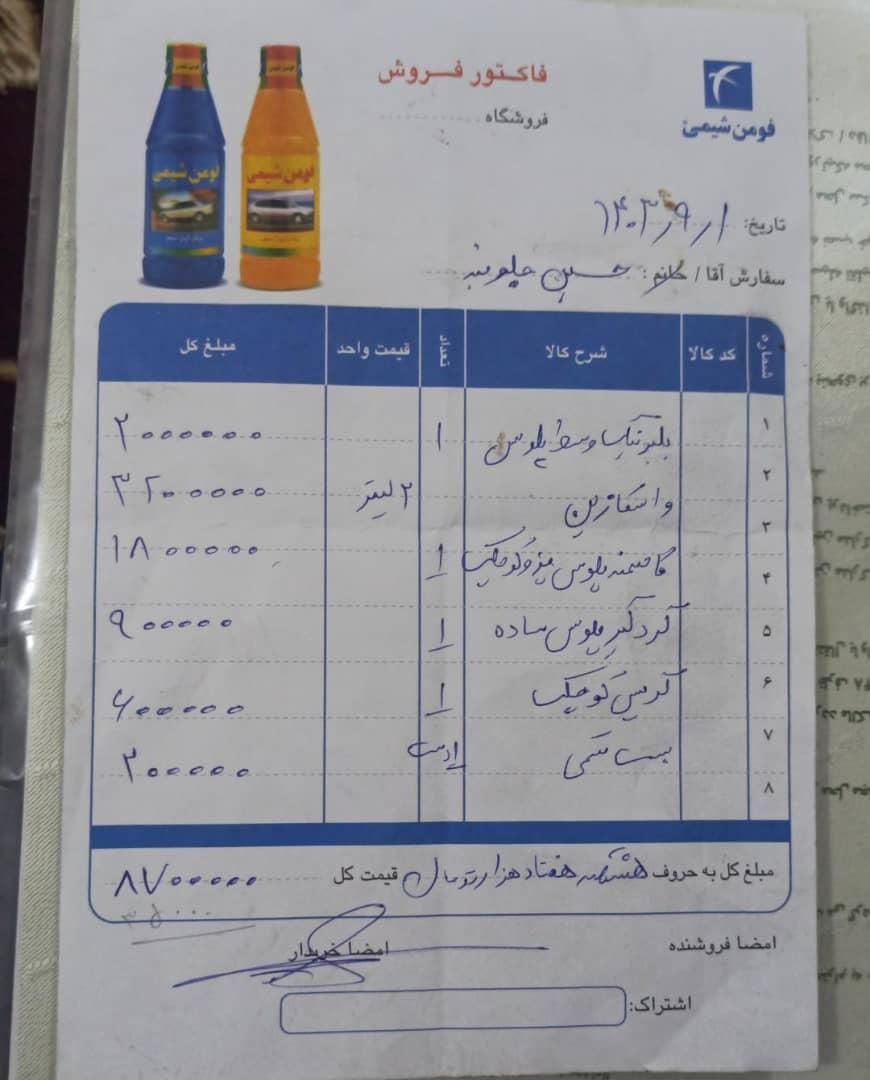 فومن شیمی
فومن شیمی
فاکتور فروش
فروشگاه
فومن شیمی
تاریخ: ۱۴۰۳٫۹٫۱
سفارش آقا / خانم: حسین
شماره کد کالا شرح کالا تعداد قیمت واحد مبلغ کل
۱ وسط پلوس ۱ ۲۰۰۰۰۰۰
۲ واسکازین ۲ لیتر ۳۲۰۰۰۰۰
۳ پلوس ۱ ۱۸۰۰۰۰۰
۴
۵ گردگیر پلوس ساده ۱ ۹۰۰۰۰۰
۶ گریس کوچک ۱ ۶۰۰۰۰۰
۷ بست ۲۰۰۰۰۰
۸
مبلغ کل به حروف هشتصد هفتاد هزار تومان قیمت کل ۸۷۰۰۰۰۰
امضا فروشنده امضا خریدار
اشتراک: